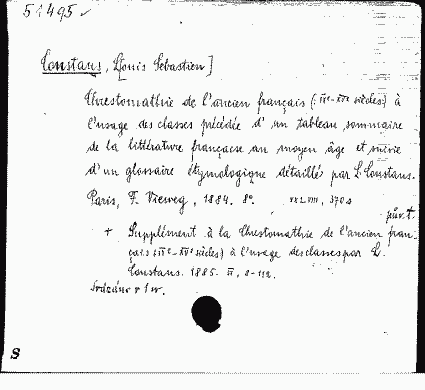 51495
Constans, L[ouis Sebastien]
Chrestomathie de l'ancien français (IXe-XVe siècles) à
l'usage des classes précédée d'un tableau sommaire
de la littérature française au moyen âge et suivie
d'un glossaire étymologique détaillé par L. Constans.
Paris, F. Vieweg, 1884. 8°. XXLVIII, 370 s
pův. t.
+ Supplément à la Chrestomathie de l'ancien fran-
çais (IXe-XVe siècles) à l'usage des classes par L.
Constans. 1885. II, 8-112.
Svázáno v 1 sv.
S